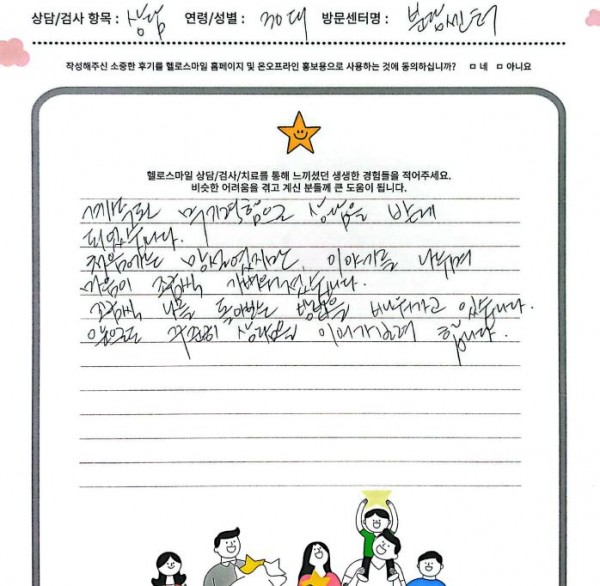 상담/검사 항목 : 상담 연령/성별 : 30대 방문센터명 : 분당센터
작성해주신 소중한 후기를 헬로스마일 홈페이지 및 온오프라인 홍보용으로 사용하는 것에 동의하십니까? ㅁ 네 ㅁ 아니요
헬로스마일 상담/검사/치료를 통해 느끼셨던 생생한 경험들을 적어주세요.
비슷한 어려움을 겪고 계신 분들께 큰 도움이 됩니다.
무기력함으로 상담을 받게
되었습니다.
처음에는 망설였지만, 이야기를 나누며
마음이 조금씩 가벼워졌습니다.
조금씩 나를 돌아보는 방법을 배워가고 있습니다.
앞으로도 꾸준히 상담을 이어가려 합니다.